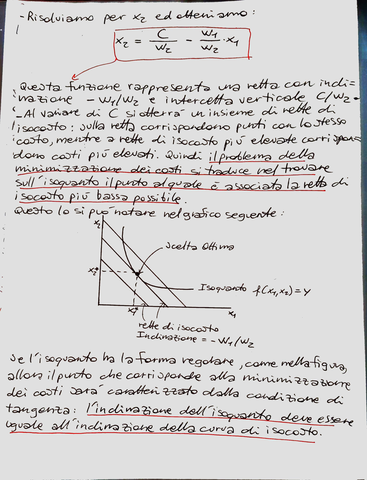 - Risolviamo per x2 ed otteniamo:
x2 = C/w2 - w1/w2 · x1
Questa funzione rappresenta una retta con incli=
nazione - w1/w2 e intercetta verticale C/w2.
- Al variare di C si otterrà un insieme di rette di
isocosto: sulla retta corrispondono punti con lo stesso
costo, mentre a rette di isocosto più elevate corrispon=
dono costi più elevati. Quindi il problema della
minimizzazione dei costi si traduce nel trovare
sull'isoquanto il punto al quale è associata la retta di
isocosto più bassa possibile.
Questo lo si può notare nel grafico seguente:
x2
Scelta Ottima
x2*
Isoquanto f(x1,x2)=y
x1*
x1
rette di isocosto
Inclinazione = - w1/w2
Se l'isoquanto ha la forma regolare, come nella figura,
allora il punto che corrisponde alla minimizzazione
dei costi sarà caratterizzato dalla condizione di
tangenza: l'inclinazione dell'isoquanto deve essere
uguale all'inclinazione della curva di isocosto.